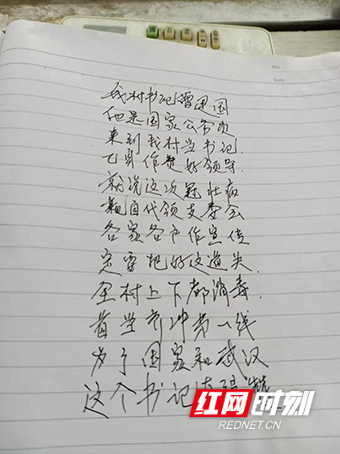 我村书记曾建国
他是国家公务员
来到我村当书记
已到作贵好领导
就说这次冠壮病
亲自代领支委会
各家各户作宣传
定要把好这道关
全村上下都消毒
首当其冲第一线
为了国家和武汉
这个书记
红网时刻
REDNET.CN